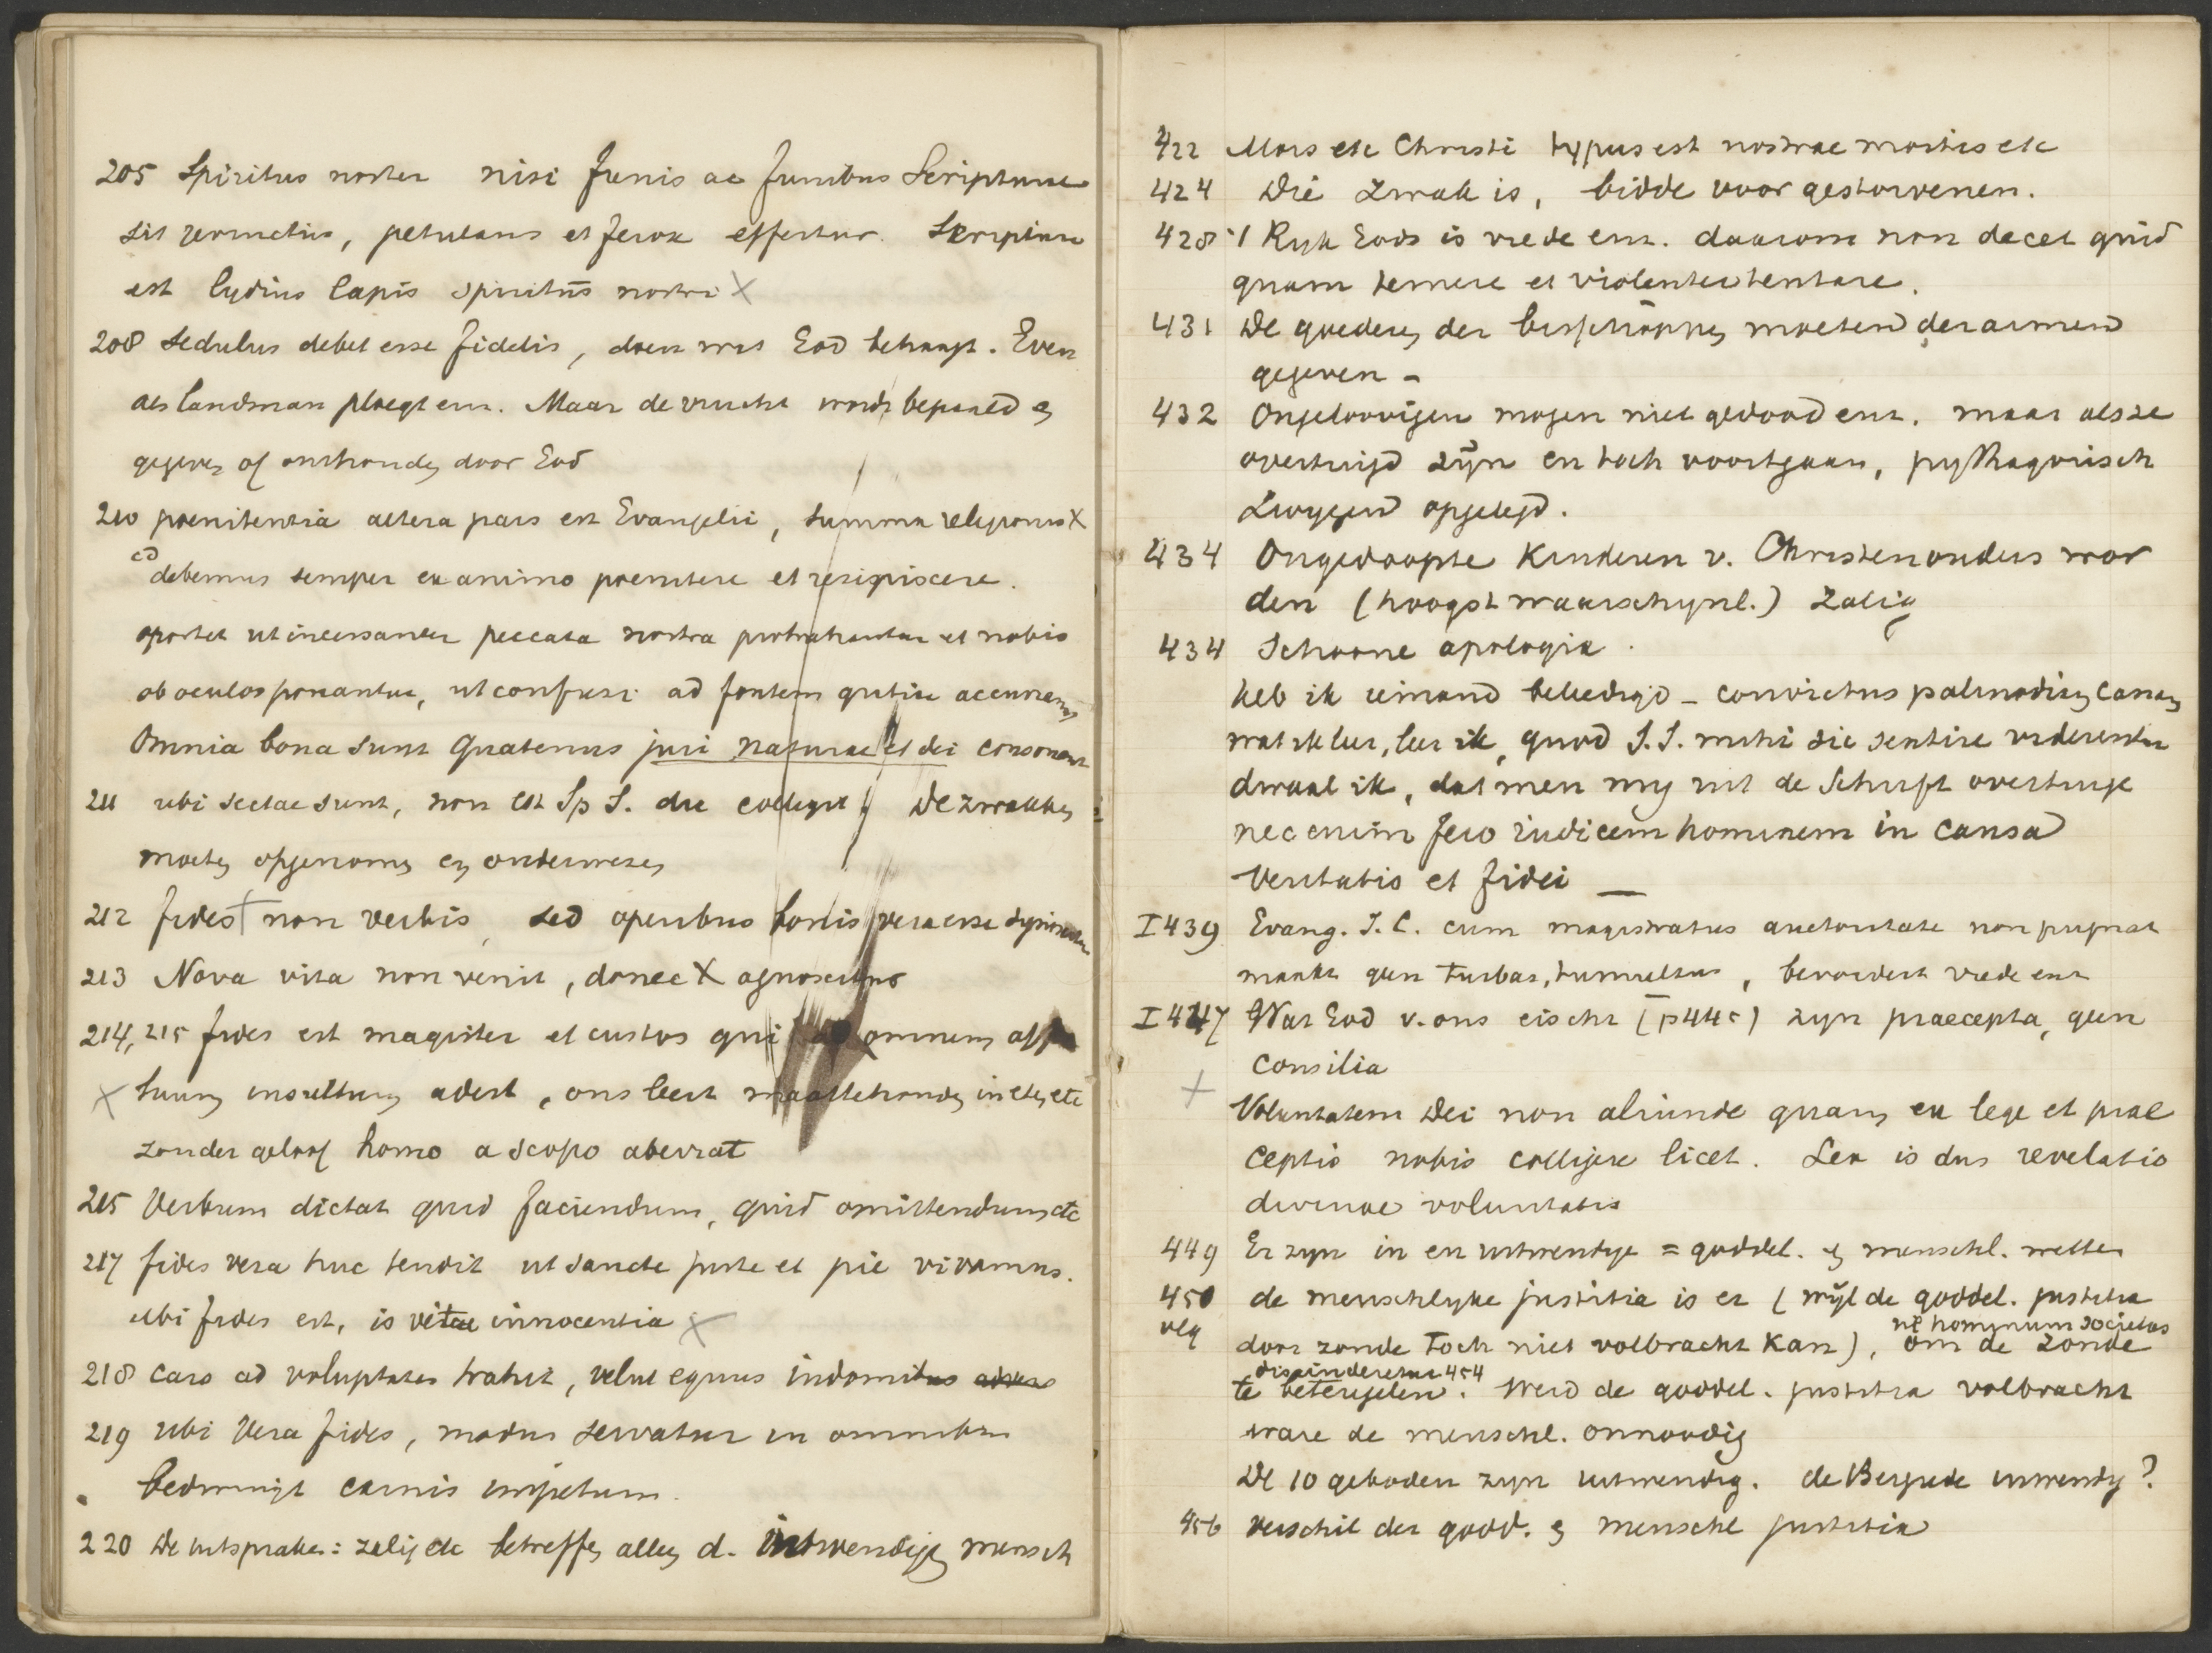 205 Spiritus noster nisi funis ac funibus Scripturae
sit revinctus, petulans et ferox effertur. Scriptura
est lydius lapis spiritus nostri X
208 Sedulus debet esse fidelis, doen wat God behaagt. Even
als landman ploegt enz. Maar de vrucht wordt bepaald en
gegeven of onthouden door God
210 poenitentia altera pars est Evangelii, summa religionis X
debemus semper ex animo poenitere et resipiscere.
oportet ut incessanter peccata nostra protrahantur et nobis
ob oculos ponantur, ut confusi ad fontem gratiae accurramus
Omnia bona sunt quatenus juri naturae et dei consonant
211 ubi sectae sunt, non est Sp S. die colligit De zwakken
moeten opgenomen en onderwezen
212 fides non verbis, sed operibus bonis vera esse
213 Nova vita non venit, donec X agnoscimus
214, 215 fides est magister et custos qui omnem
X insultum adest, ons leert maattehouden in etc etc
zonder geloof homo a scopo aberrat
215 Verbum dictat quid faciendum, quid omittendum etc
217 fides vera huc tendit ut sancte juste et pie vivamus.
ubi fides est, is vitae innocentia X
218 Caro ad voluptates trahit, velut equus indomitus
219 ubi Vera fides, modus servatur in omnibus
bedwingt carnis impetum.
220 De uitspraken: zalig etc betreffen alleen d. inwendigen mensch
422 Mors etc Christi typus est nostrae mortis etc
424 Die zwak is, bidde voor gestorvenen.
428 't Ryk Gods is vrede enz. daarom non decet quid
quam temere et violenter tentare.
431 De goederen der bisschoppen moeten den armen
gegeven -
432 Ongeloovigen mogen niet gedood enz. maar als ze
overtuigd zijn en toch voortgaan, pythagorisch
zwygend opgelegd.
434 Ongedoopte Kinderen v. Christenouders wor
den (hoogst waarschynl.) zalig
434 Schoone apologia.
heb ik iemand beleedigd - convictus palinodiam canam
wat ik leer, leer ik, quod S.S. mihi sic sentire videretur
dwaal ik, dat men my uit de Schrift overtuige
nec enim fero iudicem hominem in causa
Veritatis et fidei —
I 439 Evang. J. C. cum magistratus auctoritate non pugnat
maakt geen turbas, tumultus, bevordert vrede enz
I 447 Wat God v. ons eischt (p 445) zyn praecepta, geen
Consilia
X Voluntatem Dei non aliunde quam ex lege et prae
ceptis nobis colligere licet. Lex is dus revelatio
divinae voluntatis
449 Er zyn in en uitwendige = goddel. en menschl. wetten
450 de menschlyke justitia is er (wijl de goddel. justitia
vlg door zonde toch niet volbracht kan), om de zonde
ne hominum societas
te beteugelen. Werd de goddel. justitia volbracht
dispinderetur 454
ware de menschl. onnoodig
De 10 geboden zyn uitwendig. de Bergrede inwendig?
456 Verschil der godd. en menschl justitia